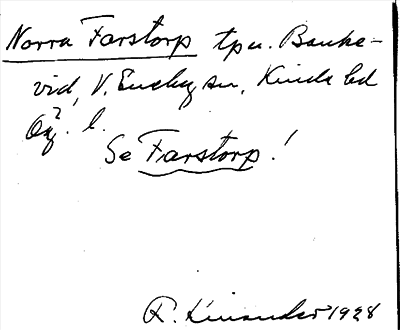 Norra Farstorp tpu. Banke-
vid, V. Eneby sn, Kinds hd
Ög. l.
Se Farstorp!
R. Kinander 1928